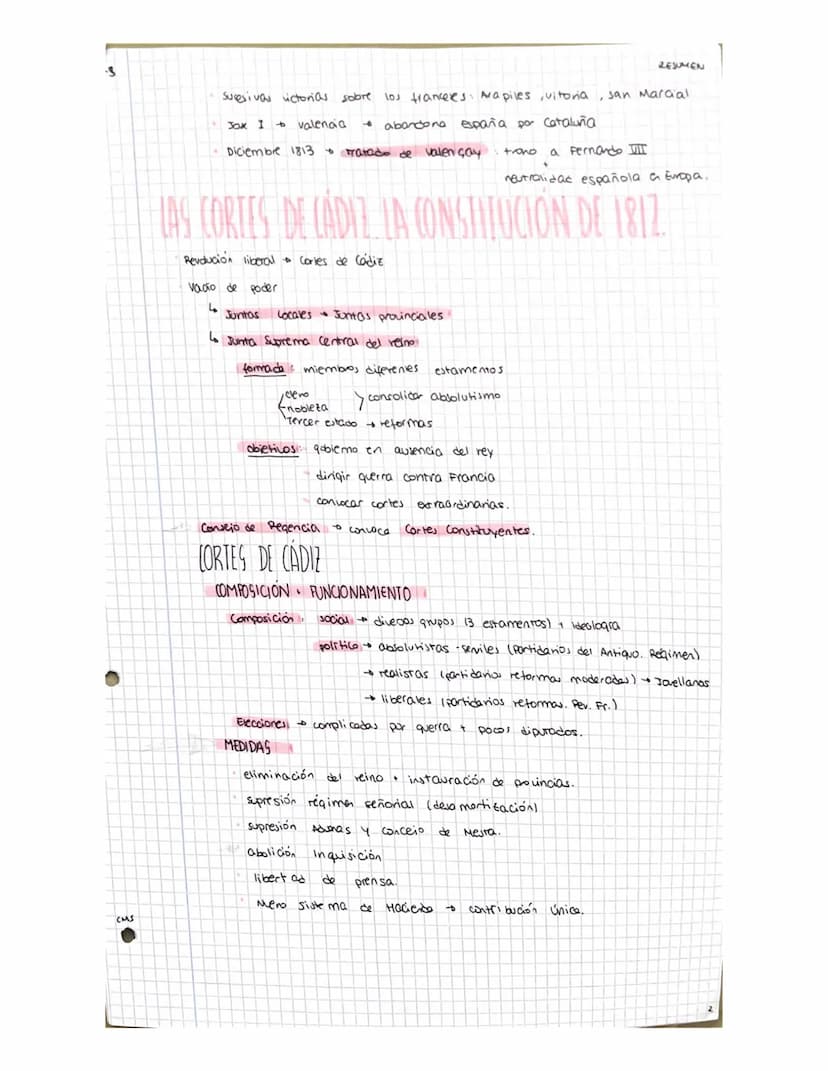 ·3
RESUMEN
· sucesivas victorias sobre los franceses: Arapiles, vitoria, San Marcial
· José I → valencia → abandona españa por Cataluña
· Diciembre 1813 → Tratado de Valençay : trono a Fernando VII
+
neutralidad española en Europa.
LAS CORTES DE CÁDIZ. LA CONSTITUCIÓN DE 1812.
· Revolución liberal → Cortes de Cádiz
· Vacío de poder
↳ Juntas Locales → Juntas provinciales
↳ Junta Suprema Central del reino
formada: miembros diferentes estamentos
clero
nobleza > consolidar absolutismo
Tercer estado → reformas
objetivos: gobierno en ausencia del rey
· dirigir guerra contra Francia
· convocar cortes extraordinarias.
Consejo de Regencia → convoca Cortes Constituyentes.
CORTES DE CÁDIZ
COMPOSICIÓN + FUNCIONAMIENTO
Composición: social → diversos grupos (3 estamentos) + ideología
político → absolutistas - serviles (partidarios del Antiguo. Régimen)
→ realistas (partidarios reformas moderadas) → Jovellanos
→ liberales (partidarios reformas. Rev. Fr.)
Elecciones → complicadas por guerra + pocos diputados.
MEDIDAS
· eliminación del reino + instauración de provincias.
· supresión régimen señorial (desamortización)
· supresión Aduanas y concejo de Mesta.
· abolición Inquisición
· libertad de prensa.
· Nuevo sistema de Hacienda → contribución única.
CMS
2